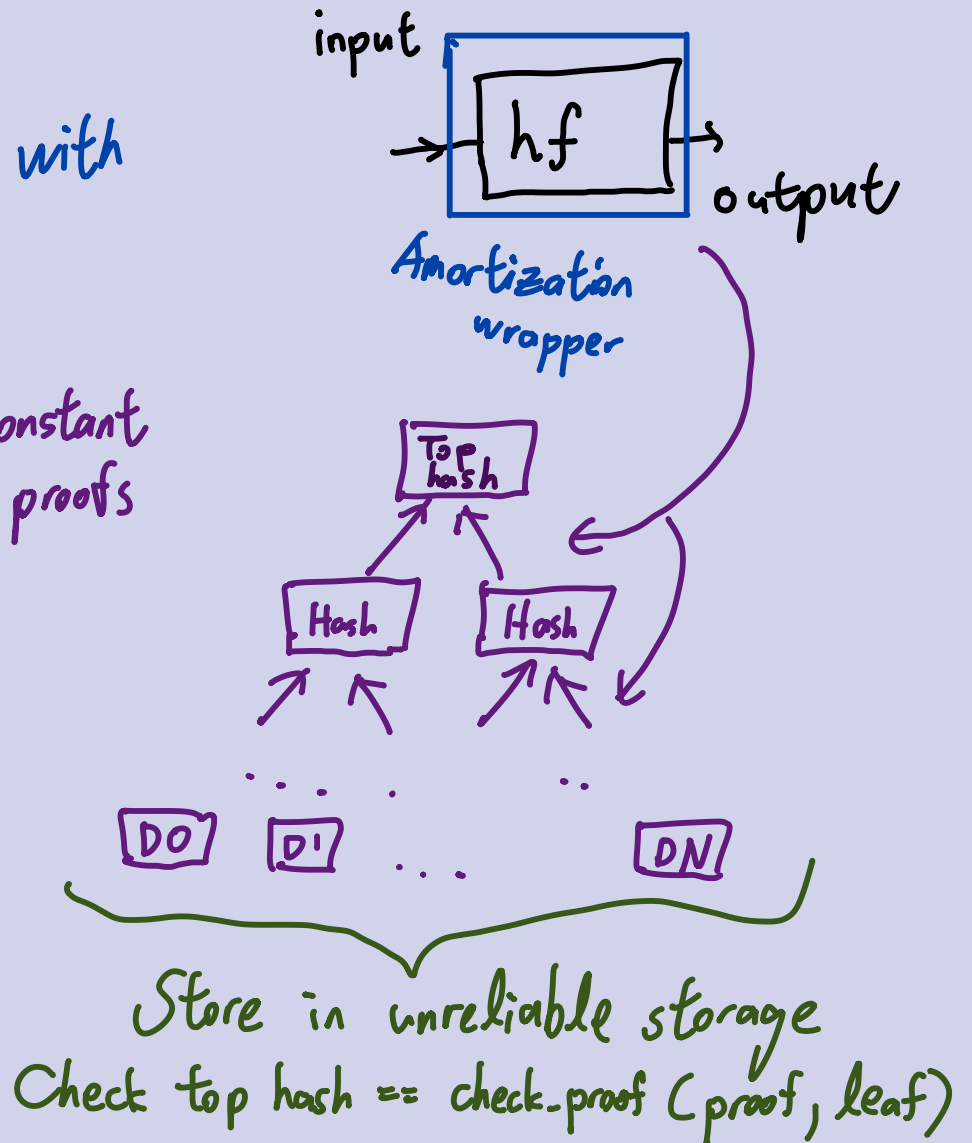 input
with
hf
output
Amortization
wrapper
onstant
proofs
Top
hash
Hash Hash
D0 D1 .... DN
Store in unreliable storage
Check top hash == check_proof (proof, leaf)